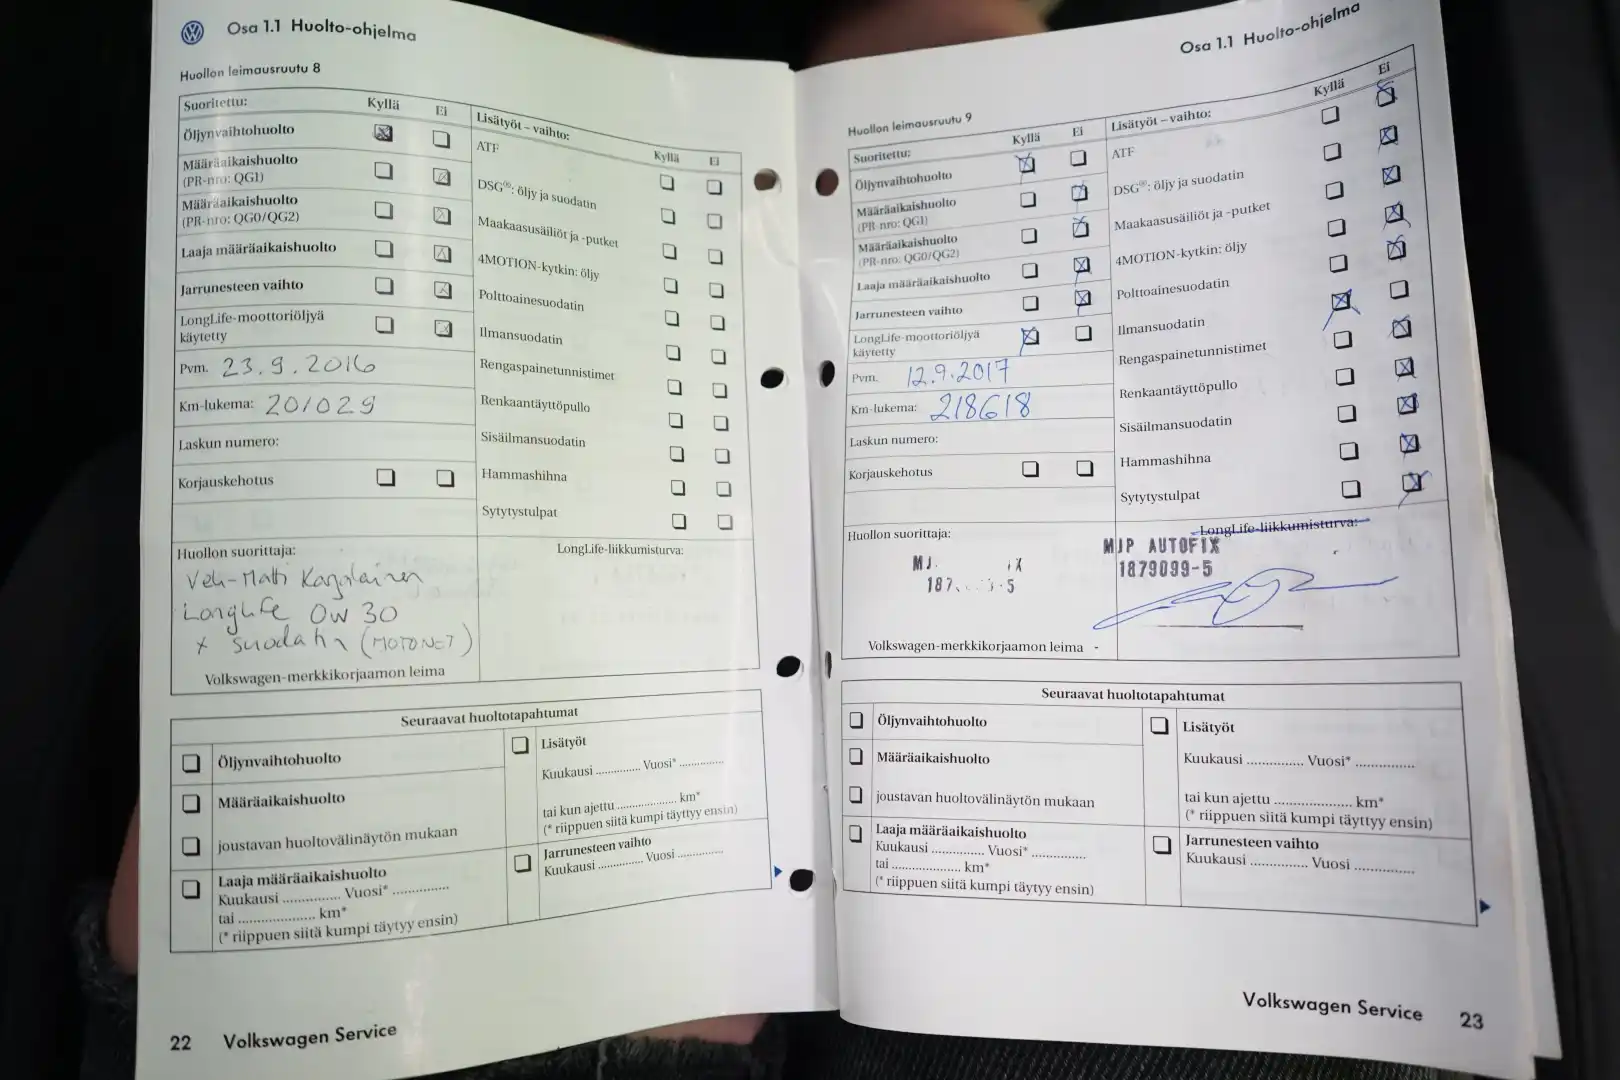 Osa 1.1 Huolto-ohjelma
Huollon leimausruutu 8
Suoritettu: Kyllä Ei
Öljynvaihtohuolto
Määräaikaishuolto
(PR-nro: QG1)
Määräaikaishuolto
(PR-nro: QG0/QG2)
Laaja määräaikaishuolto
Jarrunesteen vaihto
LongLife-moottoriöljyä
käytetty
Pvm. 23.9.2016
Km-lukema: 201029
Laskun numero:
Korjauskehotus
Lisätyöt – vaihto:
Kyllä Ei
ATF
DSG®: öljy ja suodatin
Maakaasusäiliöt ja -putket
4MOTION-kytkin: öljy
Polttoainesuodatin
Ilmansuodatin
Rengaspainetunnistimet
Renkaantäyttöpullo
Sisäilmansuodatin
Hammashihna
Sytytystulpat
Huollon suorittaja:
Veli-Matti Karjalainen
Longlife 0W 30
+ suodatin (MOTONET)
Volkswagen-merkkikorjaamon leima
LongLife-liikkumisturva:
Seuraavat huoltotapahtumat
Öljynvaihtohuolto
Määräaikaishuolto
joustavan huoltovälinäytön mukaan
Laaja määräaikaishuolto
Kuukausi ............... Vuosi* ...............
tai .................... km*
(* riippuen siitä kumpi täytyy ensin)
Lisätyöt
Kuukausi ............... Vuosi* ...............
tai kun ajettu .................... km*
(* riippuen siitä kumpi täyttyy ensin)
Jarrunesteen vaihto
Kuukausi ............... Vuosi ...............
22 Volkswagen Service
Osa 1.1 Huolto-ohjelma
Huollon leimausruutu 9
Suoritettu: Kyllä Ei
Öljynvaihtohuolto
Määräaikaishuolto
(PR-nro: QG1)
Määräaikaishuolto
(PR-nro: QG0/QG2)
Laaja määräaikaishuolto
Jarrunesteen vaihto
LongLife-moottoriöljyä
käytetty
Pvm. 12.9.2017
Km-lukema: 218618
Laskun numero:
Korjauskehotus
Lisätyöt – vaihto: Kyllä Ei
ATF
DSG®: öljy ja suodatin
Maakaasusäiliöt ja -putket
4MOTION-kytkin: öljy
Polttoainesuodatin
Ilmansuodatin
Rengaspainetunnistimet
Renkaantäyttöpullo
Sisäilmansuodatin
Hammashihna
Sytytystulpat
Huollon suorittaja:
Volkswagen-merkkikorjaamon leima -
LongLife-liikkumisturva:
MJP AUTOFIX
1879099-5
Seuraavat huoltotapahtumat
Öljynvaihtohuolto
Määräaikaishuolto
joustavan huoltovälinäytön mukaan
Laaja määräaikaishuolto
Kuukausi ............... Vuosi* ...............
tai .................... km*
(* riippuen siitä kumpi täytyy ensin)
Lisätyöt
Kuukausi ............... Vuosi* ...............
tai kun ajettu .................... km*
(* riippuen siitä kumpi täyttyy ensin)
Jarrunesteen vaihto
Kuukausi ............... Vuosi ...............
Volkswagen Service 23